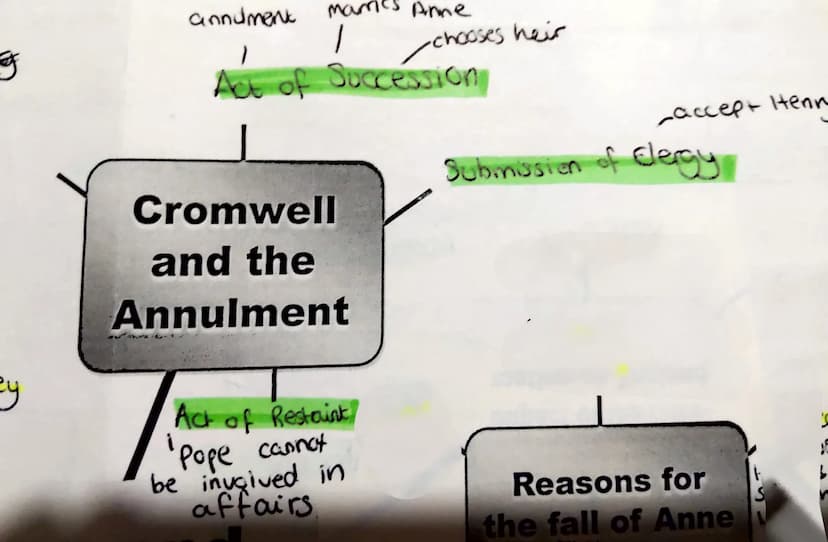 annulment
marries Anne
chooses heir
Act of Succession
accept Henr
Submission of Clergy
Cromwell
and the
Annulment
Act of Restaint
Pope cannot
be involved in
affairs
Reasons for
the fall of Anne